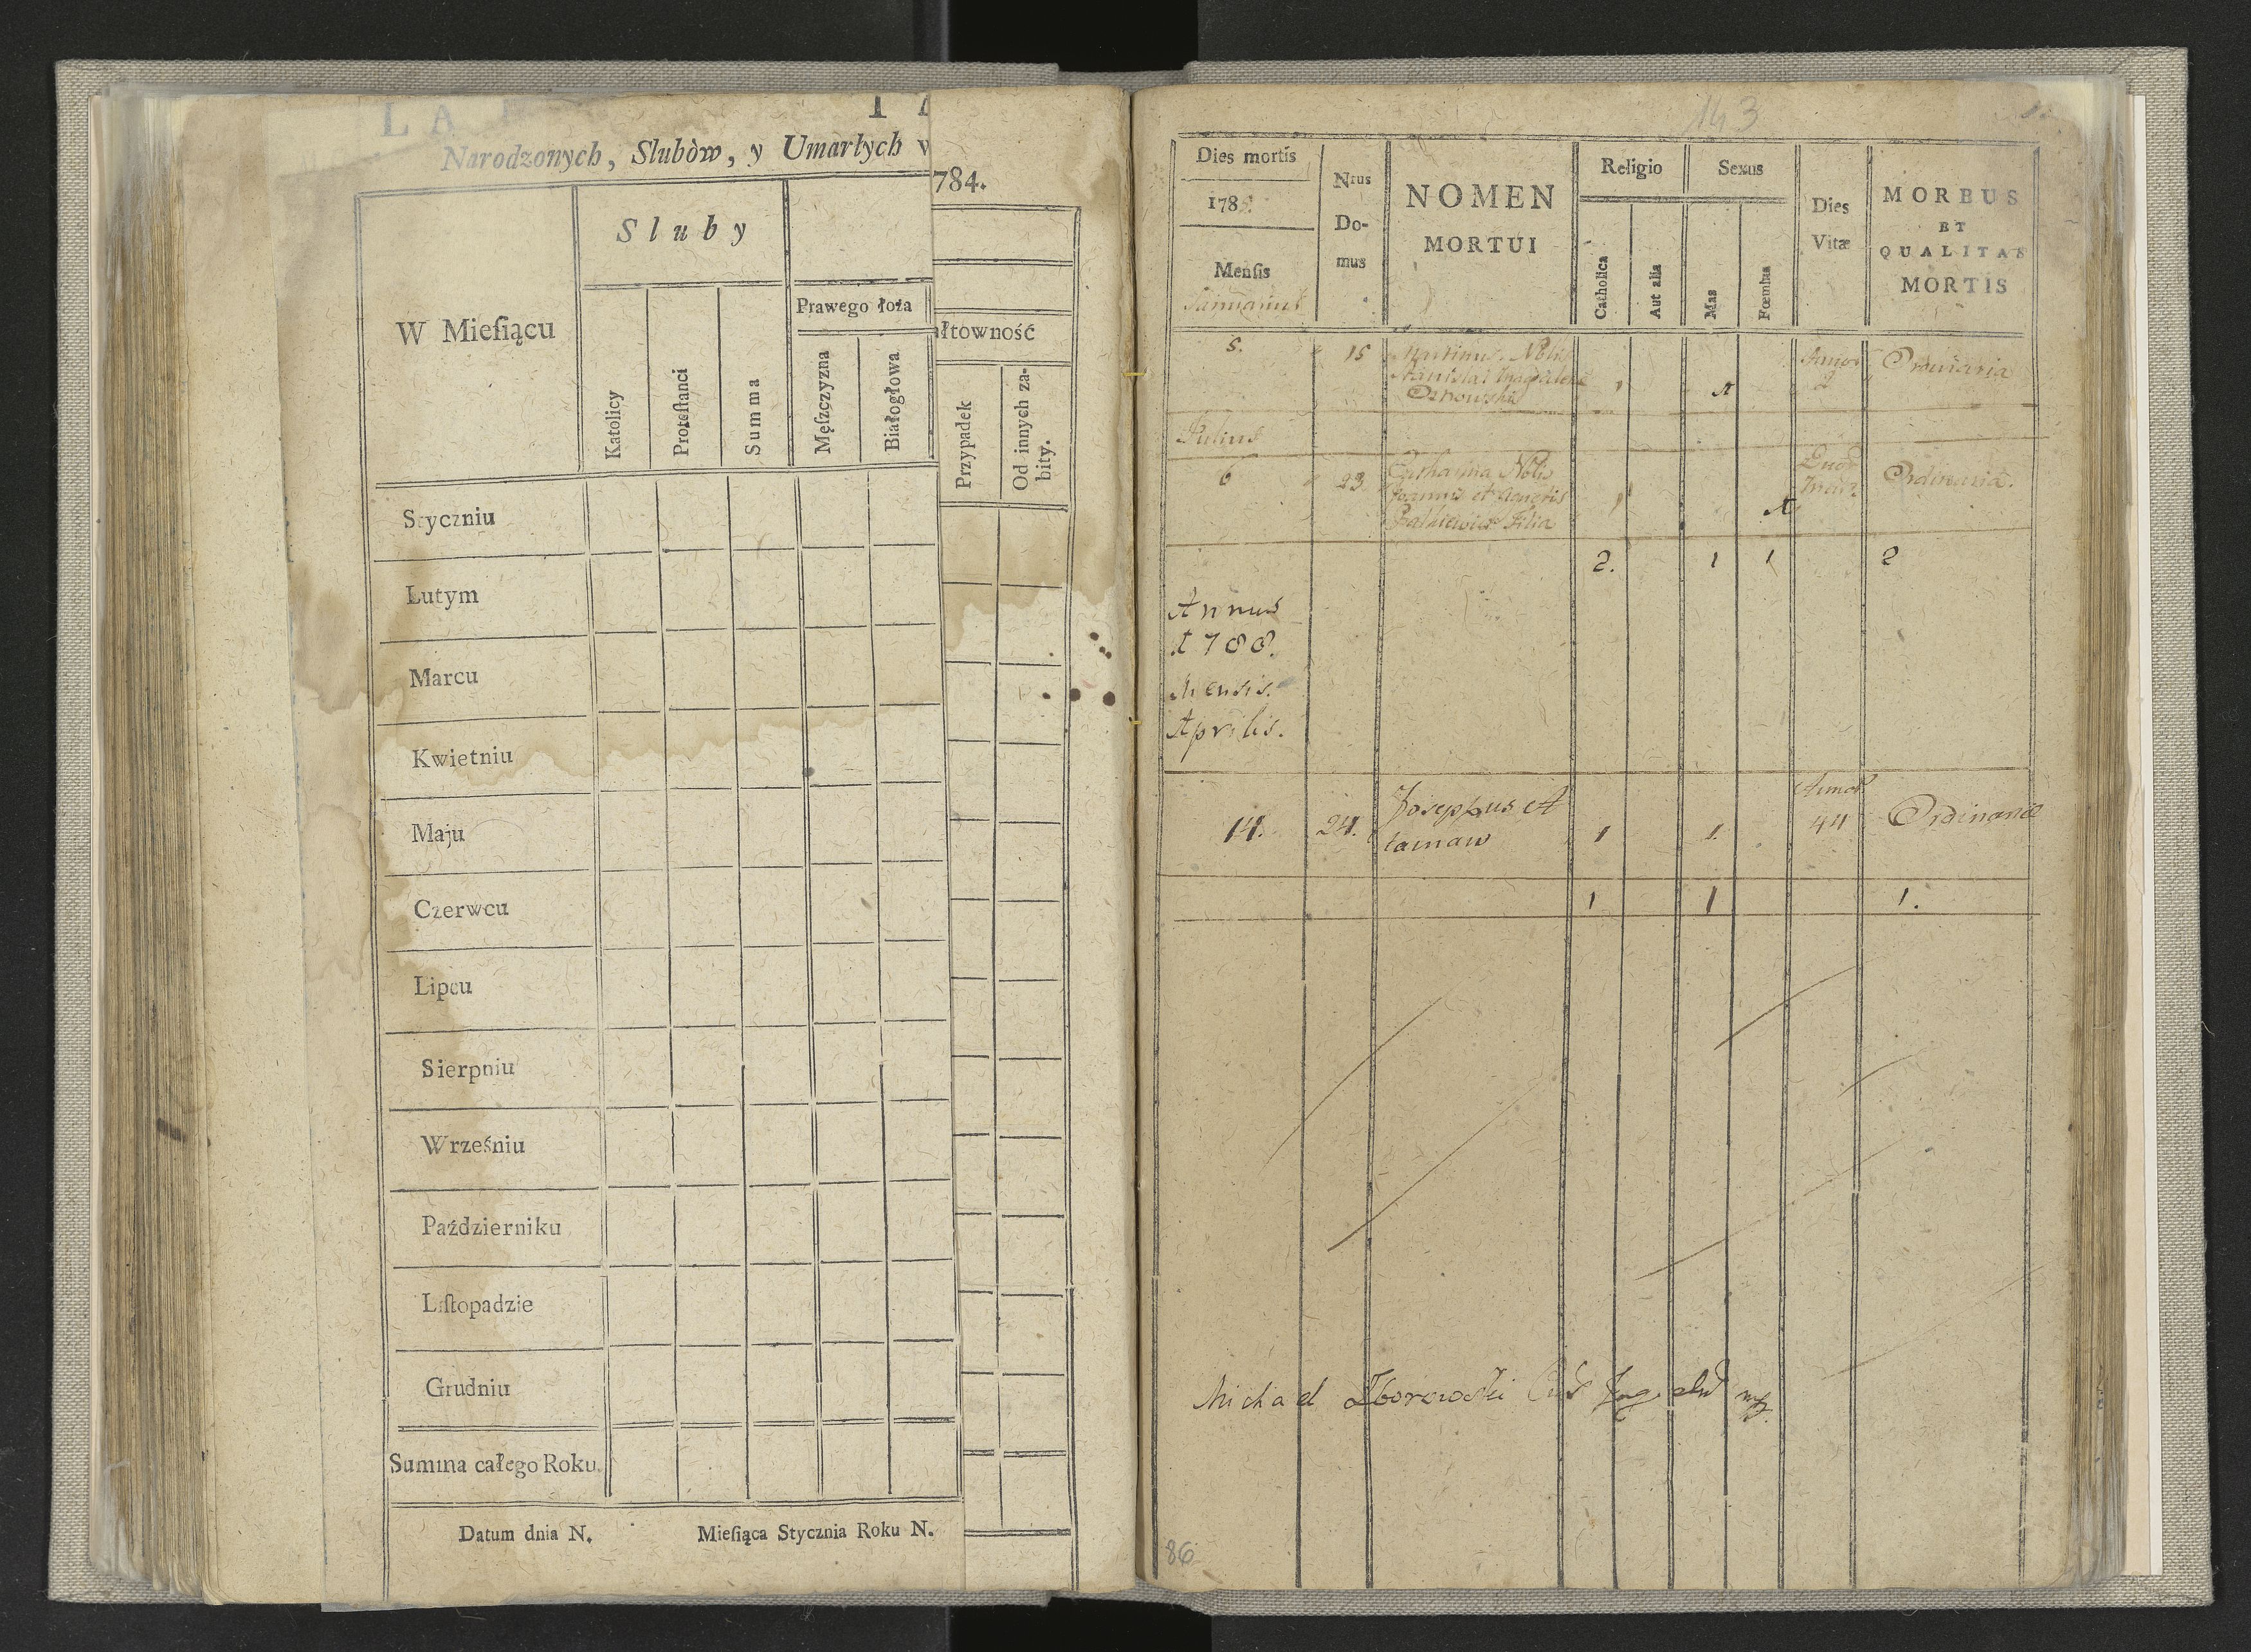 LA
Narodzonych, Slubòw, y Umarłych
784.
W Mieſiącu
Sluby
Katolicy
Proteſtanci
Summa
Prawego łoża
Męſzczyzna
Białogłowa
ałtowność
Przypadek
Od innych za-
bity.
Styczniu
Lutym
Marcu
Kwietniu
Maju
Czerwcu
Lipcu
Sierpniu
Wrześniu
Październiku
Liſtopadzie
Grudniu
Summa całego Roku.
Datum dnia N. Mieſiąca Stycznia Roku N.
143
Dies mortis
178
Menſis
Januarius
Nrus
Do-
mus
NOMEN
MORTUI
Religio
Catholica
Aut alia
Sexus
Mas
Fœmina
Dies
Vitæ
MORBUS
ET
QUALITAS
MORTIS
5. 15 Martinus Nobi
Ordinaria
Julius
6 23 Catharina Nobis
Joannis et Agnetis
Filia
Ordinaria.
2. 1 1 2
Annus
1788.
Mensis.
Aprilis.
14. 24. Josephus A
taman 1 1. Annor 44 Ordinaria
1 1 1.
Michael Zborowski
86